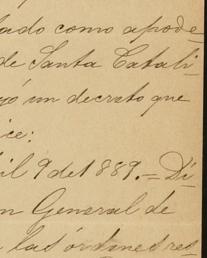 ado como apode
de Santa Catali
yó un decreto que
ice:
il 9 de 1889. = Di
n General de
las órdenes res